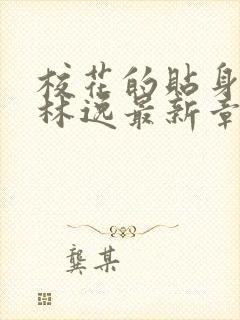 校花的貼身
林逸最新章
龔某